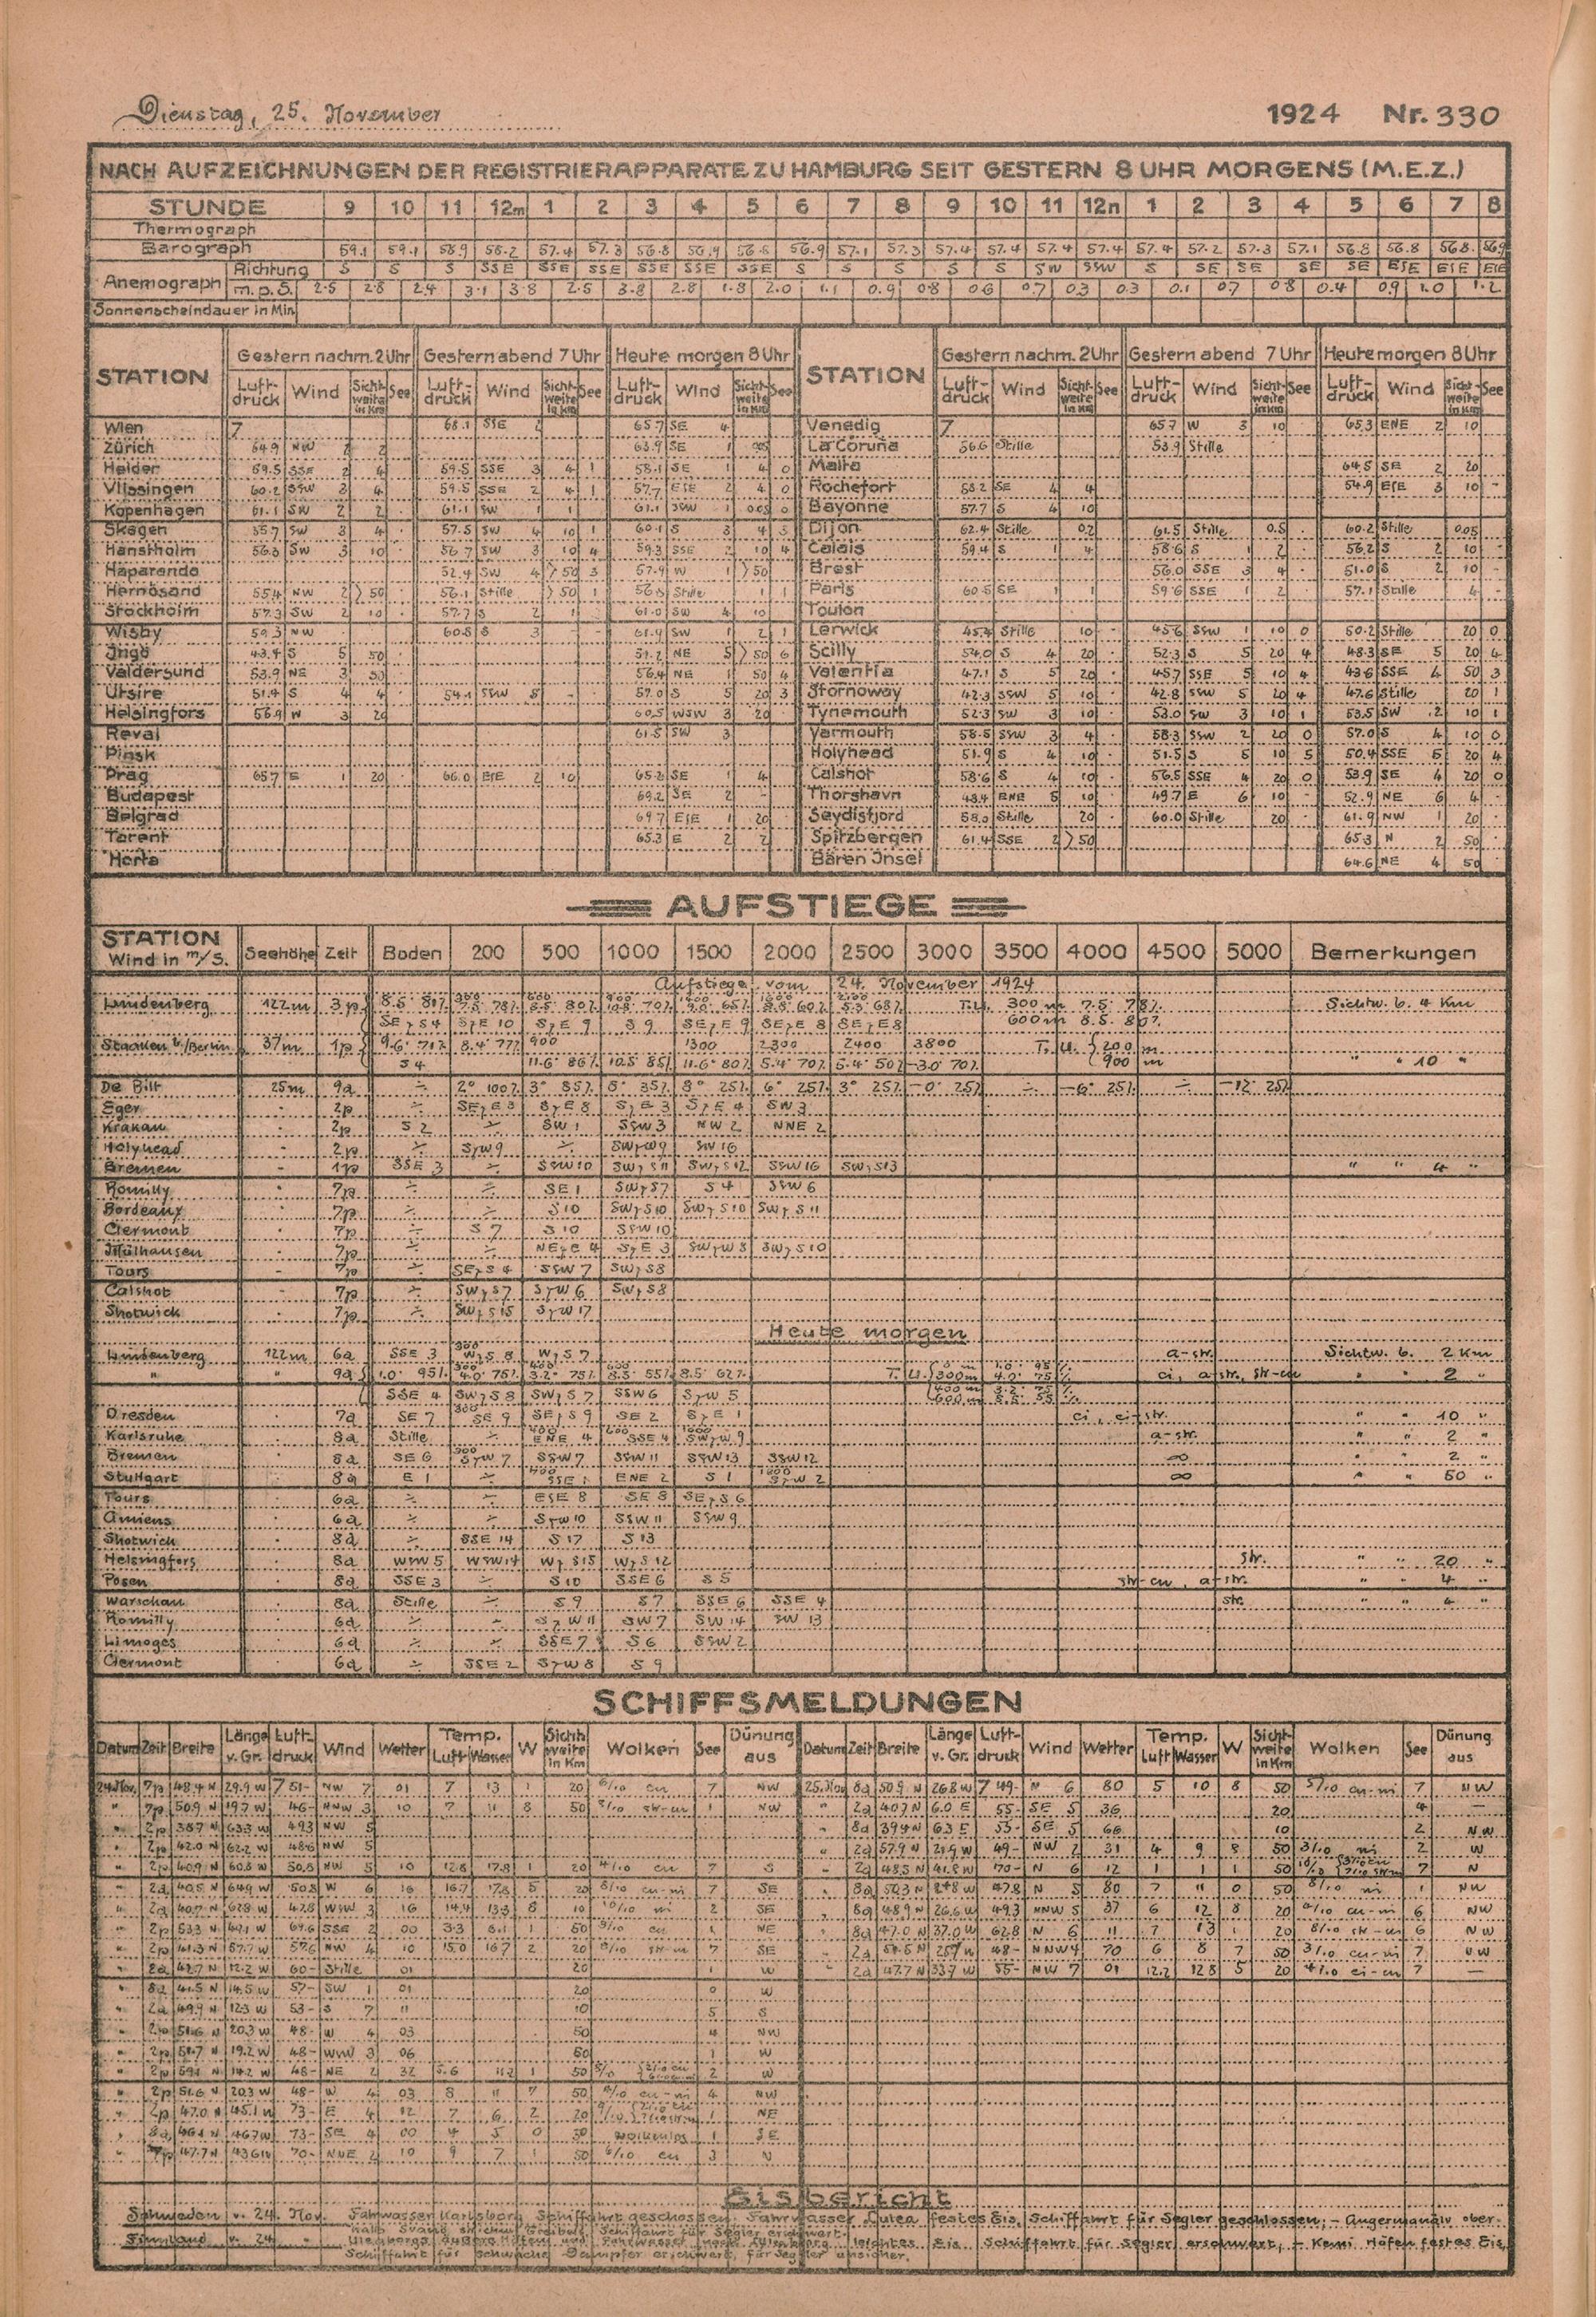 Dienstag, 25. November 1924 Nr. 330
NACH AUFZEICHNUNGEN DER REGISTRIERAPPARATE ZU HAMBURG SEIT GESTERN 8 UHR MORGENS (M.E.Z.)
STUNDE 9 10 11 12m 1 2 3 4 5 6 7 8 9 10 11 12n 1 2 3 4 5 6 7 8
Thermograph
Barograph 59.1 59.1 58.9 58.2 57.4 57.3 56.8 56.9 56.8 56.9 57.1 57.3 57.4 57.4 57.4 57.4 57.4 57.2 57.3 57.1 56.8 56.8 56.8 56.9
Anemograph Richtung S S S SSE SSE SSE SSE SSE SSE S S S S S SW SSW S SE SE SE SE ESE ESE ESE
m.p.S. 2.5 2.8 2.4 3.1 3.8 2.5 3.8 2.8 1.8 2.0 1.1 0.9 0.8 0.6 0.7 0.3 0.3 0.1 0.7 0.8 0.4 0.9 1.0 1.2
Sonnenscheindauer in Min.
STATION Gestern nachm. 2 Uhr Gestern abend 7 Uhr Heute morgen 8 Uhr STATION Gestern nachm. 2 Uhr Gestern abend 7 Uhr Heute morgen 8 Uhr
Luftdruck Wind Sichtweite in Km See Luftdruck Wind Sichtweite in Km See Luftdruck Wind Sichtweite in Km See Luftdruck Wind Sichtweite in Km See Luftdruck Wind Sichtweite in Km See Luftdruck Wind Sichtweite in Km See
Wien 7 68.1 SSE 65.7 SE 4 Venedig 7 65.7 W 3 10 65.3 ENE 2 10
Zürich 64.9 NW 2 2 63.9 SE 1 La Coruña 56.6 Stille 53.9 Stille
Helder 59.5 SSE 2 4 59.5 SSE 3 4 1 58.1 SE 1 4 0 Malta 64.5 SE 2 20
Vlissingen 60.2 SSW 3 4 59.5 SSE 2 4 1 57.7 ESE 2 4 0 Rochefort 58.2 SE 4 4 54.9 ESE 3 10
Kopenhagen 61.1 SW 2 2 61.1 SW 1 1 61.1 SSW 1 0.05 0 Bayonne 57.7 S 4 10
Skagen 55.7 SW 3 4 57.5 SW 4 10 1 60.1 S 3 4 3 Dijon 62.4 Stille 0.2 61.5 Stille 0.5 60.2 Stille 0.05
Hanstholm 56.3 SW 3 10 56.7 SW 3 10 4 59.3 SSE 2 10 4 Calais 59.4 S 1 4 58.6 S 1 2 56.2 S 2 10
Haparanda 52.4 SW 4 >50 3 57.9 W 1 >50 Brest 56.0 SSE 3 4 51.0 S 2 10
Hernösand 55.4 NW 2 >50 56.1 Stille >50 1 Stille 1 1 Paris 60.5 SE 1 1 59.6 SSE 1 2 57.1 Stille 4
Stockholm 57.3 SW 2 10 57.7 S 2 1 61.0 SW 4 10 Toulon
Wisby 59.3 NW 60.8 S 3 61.9 SW 1 2 1 Lerwick 45.4 Stille 10 45.6 SSW 1 10 0 50.2 Stille 20 0
Ingö 43.4 S 5 50 51.2 NE 5 >50 6 Scilly 54.0 S 4 20 52.3 S 5 20 4 48.3 SE 5 20 4
Valdersund 53.9 NE 3 50 56.4 NE 1 50 4 Valentia 47.1 S 5 20 45.7 SSE 5 10 4 43.6 SSE 4 50 3
Utsire 51.4 S 4 4 54.1 SSW 8 57.0 S 5 20 3 Stornoway 42.3 SSW 5 10 42.8 SSW 5 20 4 47.6 Stille 20 1
Helsingfors 56.9 W 3 20 60.5 WSW 3 20 Tynemouth 52.3 SW 3 10 53.0 SW 3 10 1 53.5 SW 2 10 1
Reval 61.5 SW 3 Yarmouth 58.5 SSW 3 4 58.3 SSW 2 20 0 57.0 S 4 10 0
Pinsk Holyhead 51.9 S 4 10 51.5 S 5 10 5 50.4 SSE 5 20 4
Prag 65.7 E 1 20 66.0 ESE 2 10 65.2 SE 1 4 Calshot 58.6 S 4 10 56.5 SSE 4 20 0 53.9 SE 4 20 0
Budapest 69.2 SE 2 Thorshavn 43.4 ENE 5 10 49.7 E 6 10 52.9 NE 6 4
Belgrad 69.7 ESE 1 20 Seydisfjord 58.0 Stille 20 60.0 Stille 20 61.9 NW 1 20
Tarent 65.3 E 2 2 Spitzbergen 61.4 SSE 2 >50 65.3 N 2 50
Horta Bären Insel 64.6 NE 4 50
AUFSTIEGE
STATION Wind in m/S. Seehöhe Zeit Boden 200 500 1000 1500 2000 2500 3000 3500 4000 4500 5000 Bemerkungen
Aufstiege vom 24. November 1924
Lindenberg 122m 3p T.U. 300 m 7.5° 78% Sichtw. b. 4 Km
600m 8.5. 80%
SE S4 SE 10 SE 9 S 9 SE E 9 SE E 8 SE E 8
Staaken b./Berlin 37m 1p 9.6° 71% 8.4° 77% 900 1300 2300 2400 3800 T.U. 200 m
S 4 11.6° 86% 10.5° 85% 11.6° 80% 5.4° 70% 5.4° 50% -3.0° 70% 900 m " " 10 "
De Bilt 25m 9a 2° 100% 3° 85% 8° 35% 8° 25% 6° 25% 3° 25% -0° 25% -6° 25% -12° 25%
Eger 2p SEzE 3 SzE 8 SzE 3 SzE 4 SW 3
Krakau 2p S 2 SW 1 SSW 3 NW 2 NNE 2
Holyhead 2p SzW 9 SWzW 9 SW 16
Bremen 1p SSE 3 SSW 10 SWzS 11 SWzS 12 SSW 16 SWzS 13 " " 4 "
Romilly 7p SE 1 SWzS 7 S 4 SSW 6
Bordeaux 7p S 10 SWzS 10 SWzS 10 SWzS 11
Clermont 7p S 7 S 10 SSW 10
Mülhausen 7p NEzE 4 SzE 3 SWzW 3 SWzS 10
Tours 7p SEzS 4 SSW 7 SWzS 8
Calshot 7p SWzS 7 SzW 6 SWzS 8
Shotwick 7p SWzS 15 SzW 17
Heute morgen
Lindenberg 122m 6a SSE 3 WzS 8 WzS 7 a-str. Sichtw. b. 2 Km
" " 9a 1.0° 95% 4.0° 75% 3.2° 75% 8.5° 55% 8.5° 62% T.U. ci, a-str., str-cu " " 2 "
SSE 4 SWzS 8 SWzS 7 SSW 6 SzW 5
Dresden 7a SE 7 SE 9 SEzS 9 SE 2 SzE 1 ci, ci-str. " " 10 "
Karlsruhe 8a Stille ENE 4 SSE 4 SWzW 9 a-str. " " 2 "
Bremen 8a SE 6 SzW 7 SSW 7 SSW 11 SSW 13 SSW 12 ∞ " " 2 "
Stuttgart 8a E 1 SSE 1 ENE 2 S 1 SzW 2 ∞ " " 50 "
Tours 6a ESE 8 SE 8 SEzS 6
Amiens 6a SzW 10 SSW 11 SSW 9
Shotwick 8a SSE 14 S 17 S 13
Helsingfors 8a WSW 5 WSW 14 WzS 15 WzS 12 str. " " 20 "
Posen 8a SSE 3 S 10 SSE 6 S 5 str-cu, a-str. " " 4 "
Warschau 8a Stille S 9 S 7 SSE 6 SSE 4 str. " " 4 "
Romilly 6a SzW 11 SW 7 SW 14 SW 13
Limoges 6a SSE 7 S 6 SSW 2
Clermont 6a SSE 2 SzW 8 S 9
SCHIFFSMELDUNGEN
Datum Zeit Breite Länge v. Gr. Luftdruck Wind Wetter Temp. Luft Wasser W Sichtweite in Km Wolken See Dünung aus Datum Zeit Breite Länge v. Gr. Luftdruck Wind Wetter Temp. Luft Wasser W Sichtweite in Km Wolken See Dünung aus
24. Nov. 7p 48.4 N 29.9 W 751- NW 7 01 7 13 1 20 cu 7 NW 25. Nov 8a 50.9 N 26.8 W 749- N 6 80 5 10 8 50 5/10 cu-ni 7 NW
" 7p 50.9 N 19.7 W 46- NNW 3 10 7 11 8 50 str-cu 1 NW " 2a 40.7 N 6.0 E 55- SE 5 36 20 4 —
" 2p 38.7 N 63.3 W 49.3 NW 5 " 8a 39.4 N 6.3 E 53- SE 5 66 10 2 NW
" 2p 42.0 N 62.2 W 48.6 NW 5 " 2a 57.9 N 21.9 W 49- NW 2 31 4 9 8 50 3/10 ni 2 W
" 2p 40.9 N 60.8 W 50.8 NW 5 10 12.8 17.8 1 20 4/10 cu 7 S " 2a 48.5 N 41.8 W 70- N 6 12 1 1 1 50 7 N
" 2a 40.5 N 64.9 W 50.8 W 6 16 16.7 17.8 5 20 cu-ni 7 SE " 8a 50.3 N W 47.8 N 5 80 7 11 0 50 8/10 ni 1 NW
" 2a 40.7 N 62.8 W 47.8 WSW 3 16 14.4 13.3 8 10 ni 2 SE " 8a 48.9 N 26.6 W 49.3 NNW 5 37 6 12 8 20 cu-ni 6 NW
" 2p 53.3 N 42.1 W 69.6 SSE 2 00 3.3 1 50 cu 1 NE " 8a 47.0 N 37.0 W 62.8 N 6 11 7 13 1 20 8/10 str-cu 6 NW
" 2p 41.3 N 57.7 W 57.6 NW 4 10 15.0 16.7 2 20 7 SE " 2a W 48- NNW 4 70 6 8 7 50 3/10 cu-ni 7 NW
" 8a 42.7 N 12.2 W 60- Stille 01 20 1 W " 2a 47.7 N 33.7 W 55- NW 7 01 12.2 12.8 5 20 4/10 ci-cu 7 —
" 8a 41.5 N 14.5 W 57- SW 1 01 20 0 W
" 2a 49.9 N 12.3 W 53- S 7 11 10 5 S
" 2p 51.6 N 20.3 W 48- W 4 03 50 4 NW
" 2p 51.7 N 19.2 W 48- WSW 3 06 50 1 W
" 2p 14.2 W 48- NE 2 32 5.6 1 50 2 W
" 2p 51.6 N 20.3 W 48- W 4 03 8 11 7 50 cu-ni 4 NW
" 2p 47.0 N 45.1 W 73- E 4 12 7 6 2 20 1 NE
" 8a 46.7 W 73- SE 4 00 4 5 0 50 wolkenlos 1 SE
" 7p 47.7 N 43.6 W 70- NNE 2 10 9 7 1 50 cu 3 N
Eisbericht
Schweden v. 24. Nov. Fahrwasser Karlsborg Schiffahrt geschlossen. Fahrwasser Lulea festes Eis, Schiffahrt für Segler geschlossen; – Angermanälv ober-
halb Schiffahrt für Segler erschwert.
Finnland v. 24. " äußere Häfen und Fahrwasser leichtes Eis Schiffahrt für Segler erschwert, – Kemi Häfen festes Eis,
Schiffahrt für schwache Dampfer erschwert, für Segler unsicher.